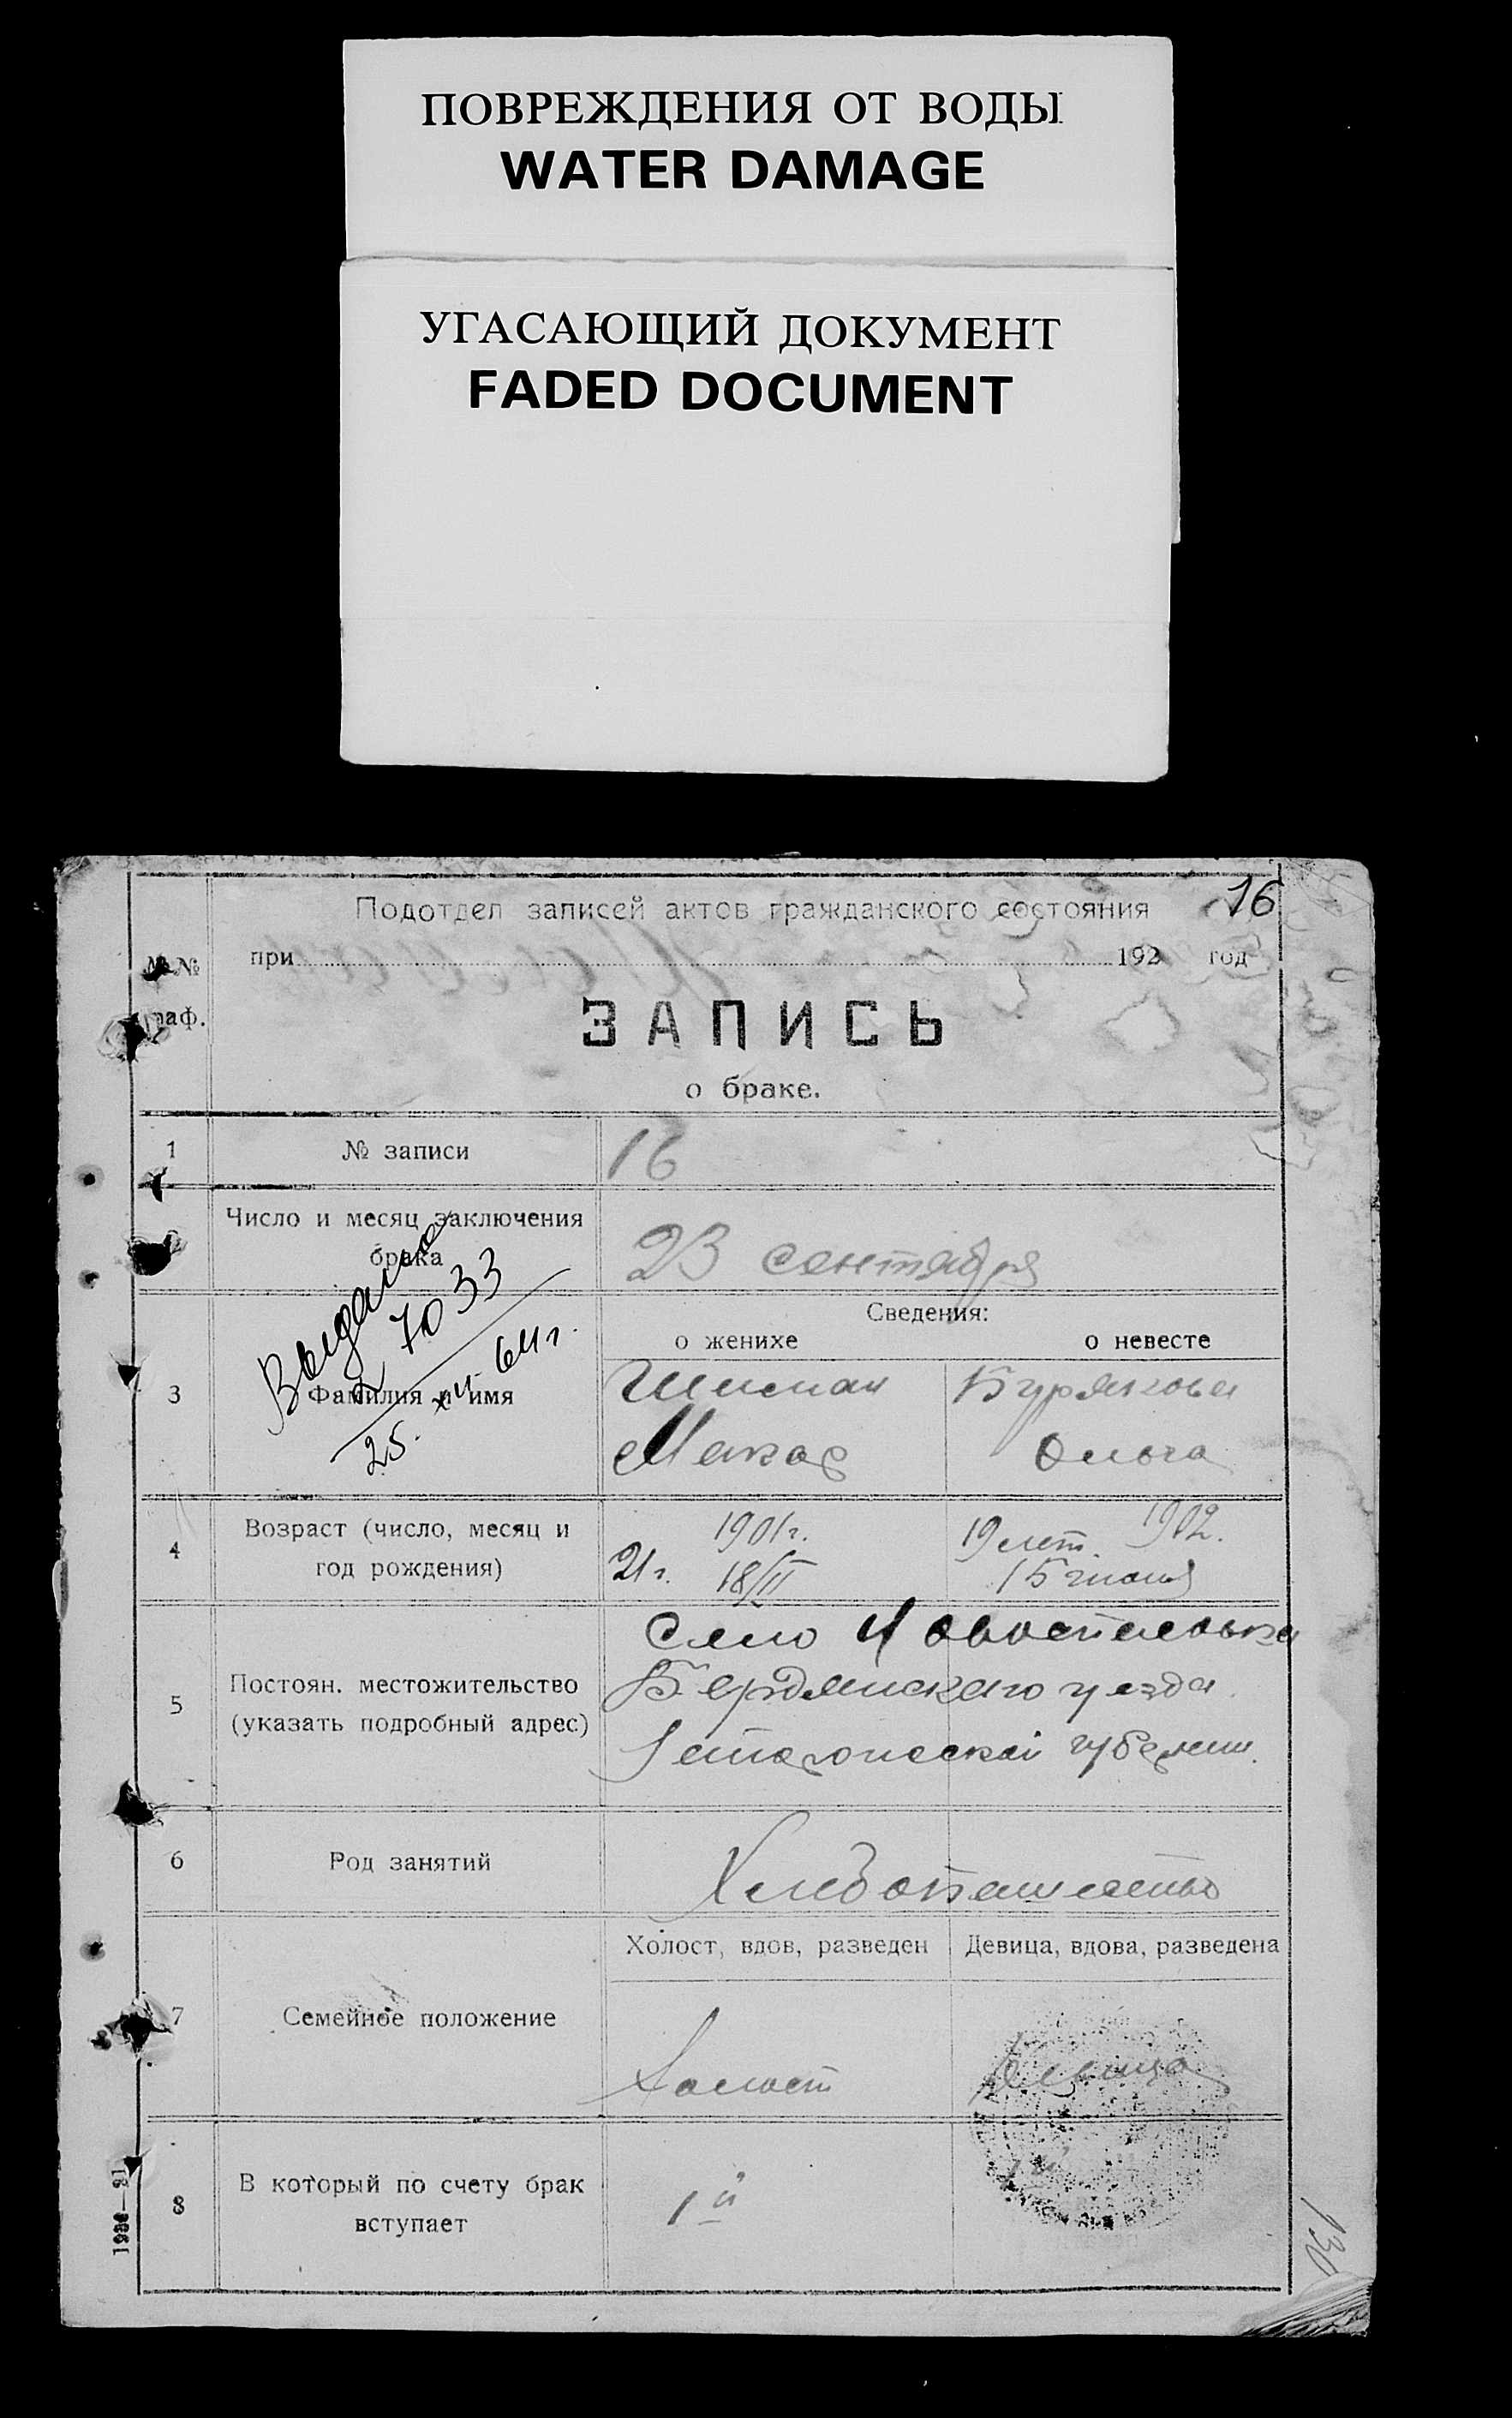 ПОВРЕЖДЕНИЯ ОТ ВОДЫ
WATER DAMAGE
УГАСАЮЩИЙ ДОКУМЕНТ
FADED DOCUMENT
16
Подотдел записей актов гражданского состояния
№№ при 192 год
раф.
ЗАПИСЬ
о браке.
1 № записи 16
Число и месяц заключения брака 23 сентября
Выдано
7033
25. XII-64г.
Сведения:
о женихе о невесте
3 Фамилия и имя Шишман Бурякова
Макар Ольга
4 Возраст (число, месяц и год рождения) 21г. 1901г. 18/II 19 лет. 1902.
5 Постоян. местожительство Село
(указать подробный адрес) Бердянского уезда
губернии.
6 Род занятий Хлебопашество
Холост, вдов, разведен Девица, вдова, разведена
7 Семейное положение Холост Девица
8 В который по счету брак вступает 1й
130